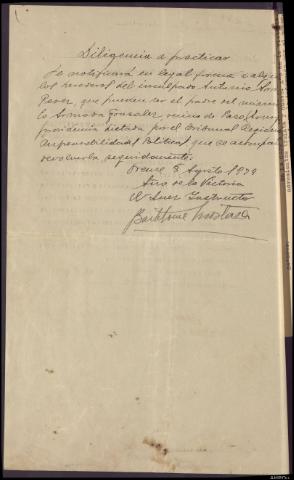 Diligencia a practicar
Se notificará en legal forma a
los herederos del inculpado Antonio
Perez, que pueden ser el padre del mismo
Armada Gonzalez, vecino de
providencia dictada por el Tribunal Regional
Responsabilidades Politicas que se acompaña
devolverla seguidamente.
Orense 8 Agosto 1939
Año de la Victoria
El Juez Instructor